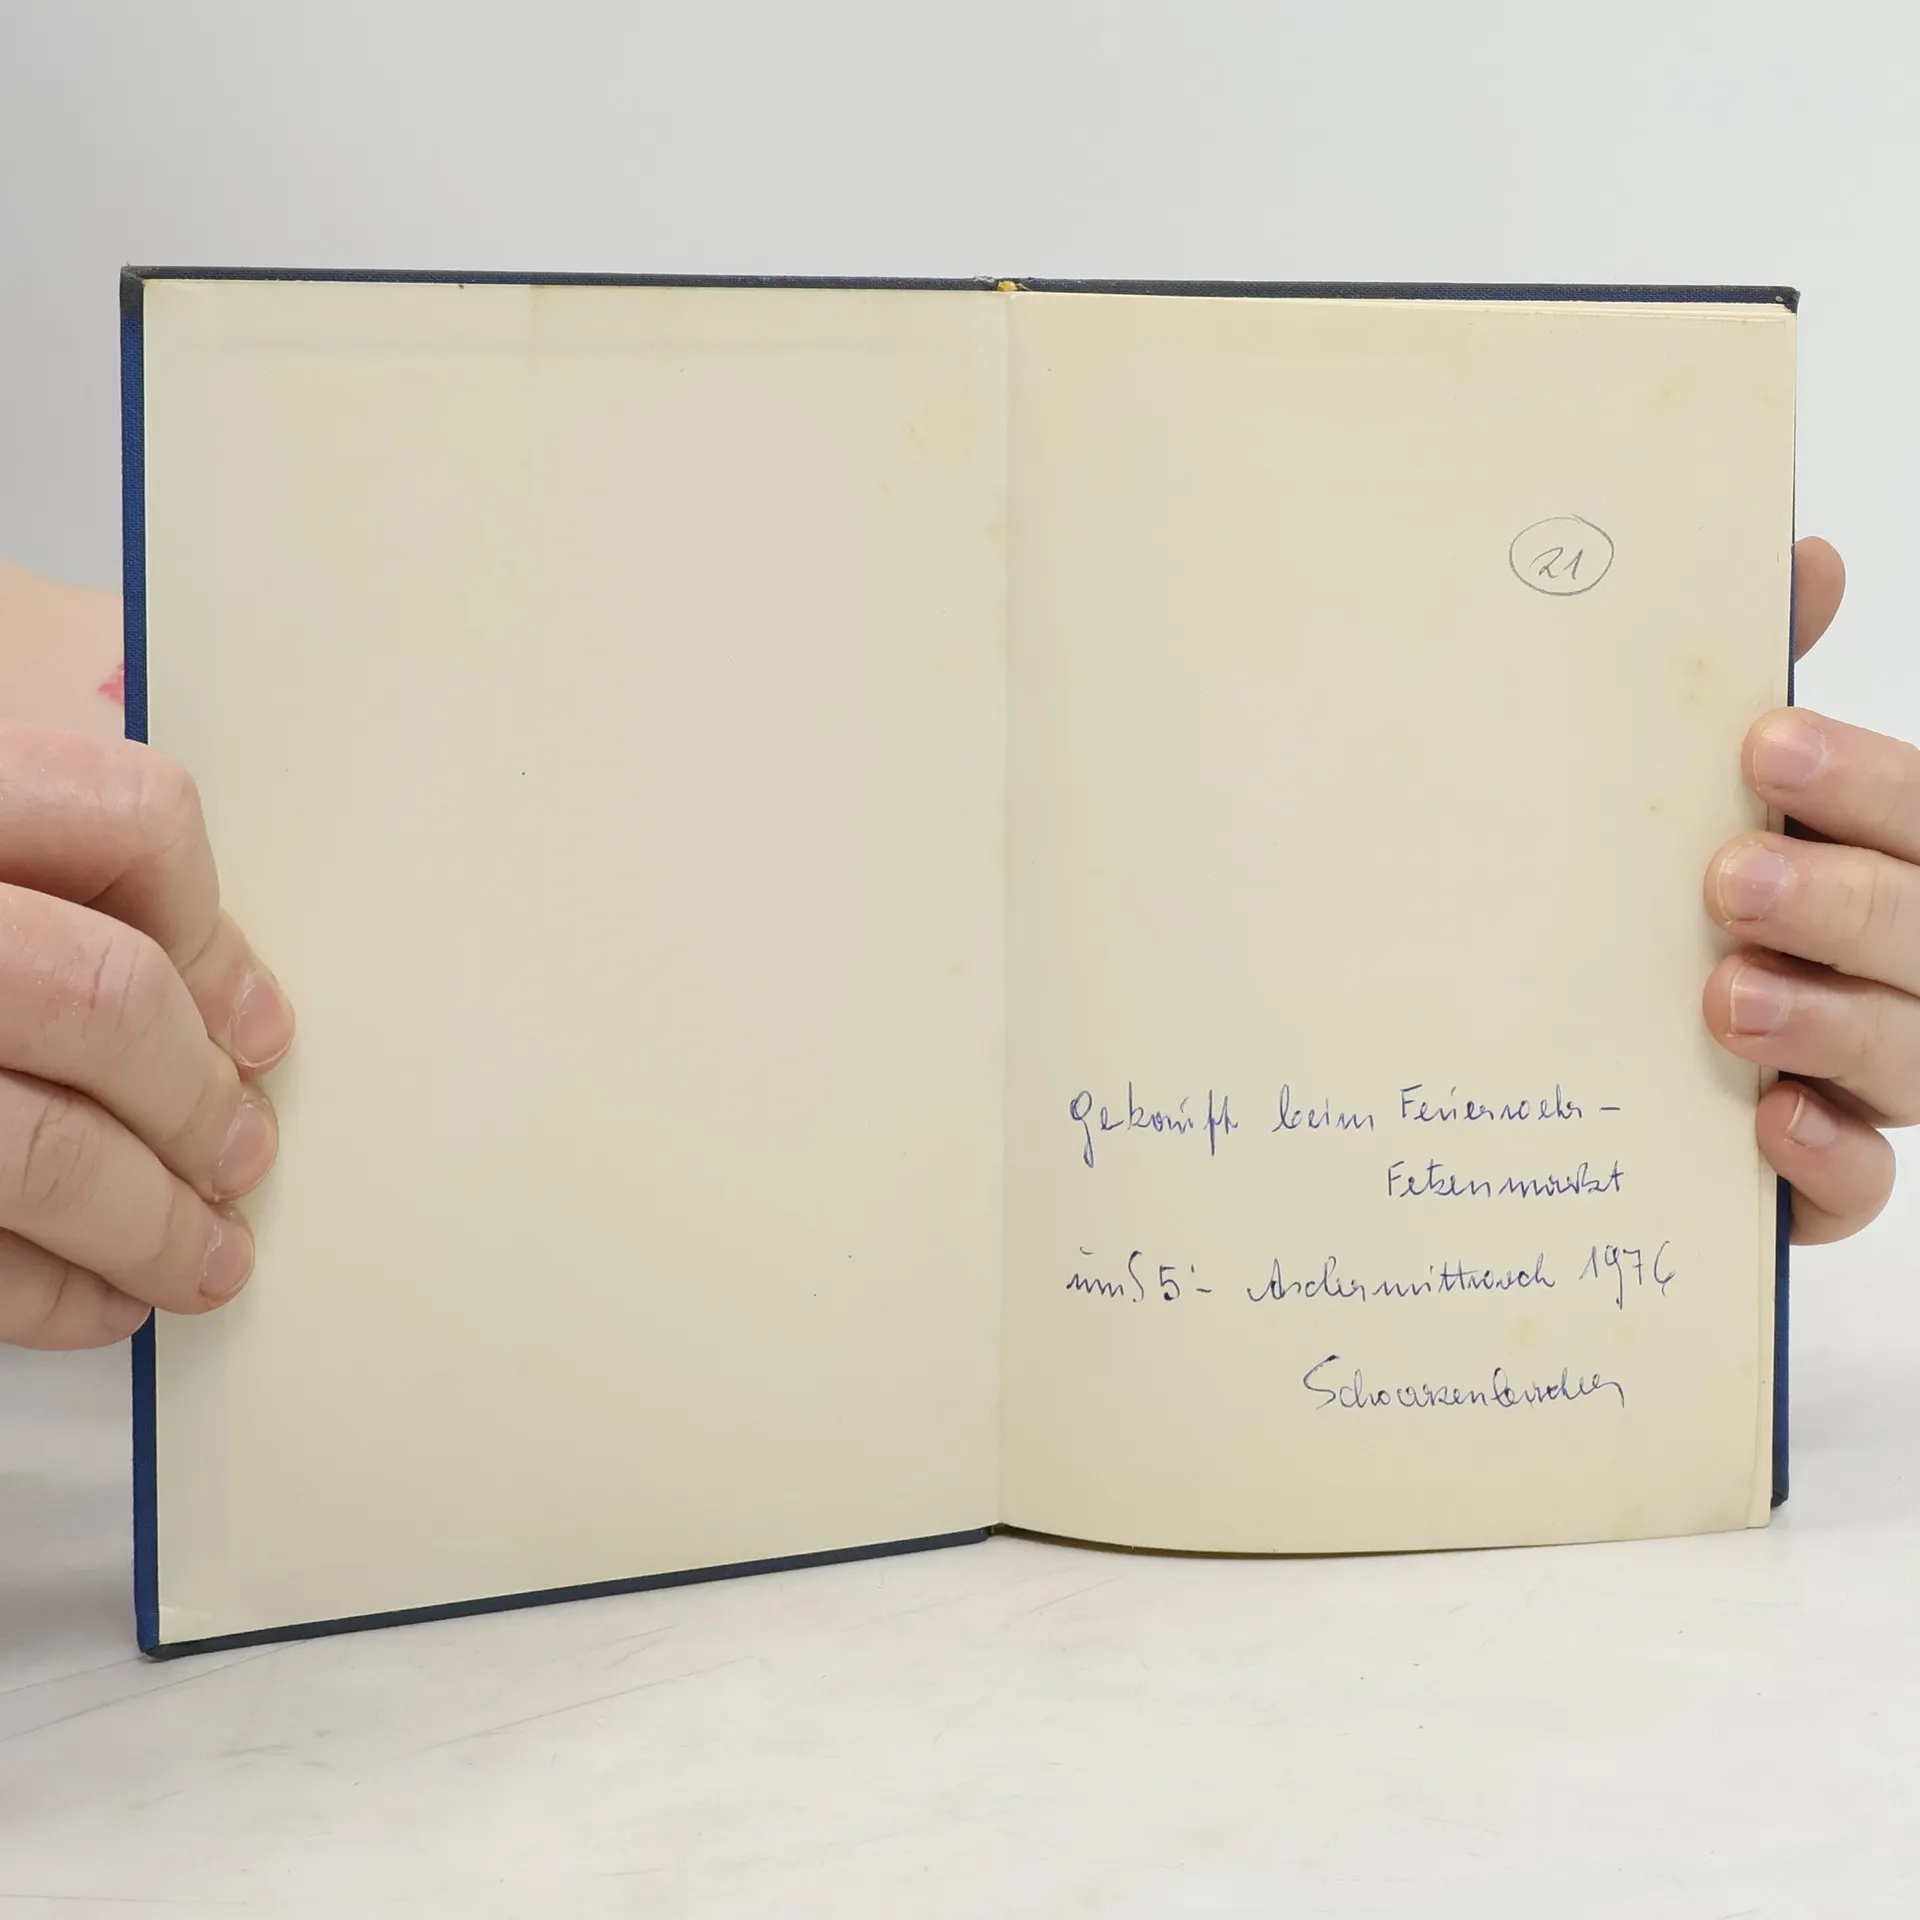 21
Gekauft beim Feuerwehr-
Fetzenmarkt
um S 5.- Aschermittwoch 1976